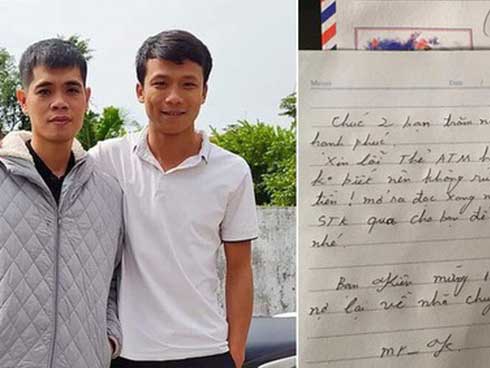 Chúc 2 bạn trăm n
hạnh phúc.
"Xin lỗi Thẻ ATM h
k° biết nên không rú
tiền! mở ra đọc xong n
STK qua cho bạn để
nhé.
Bạn Kiên mừng 1
nợ lại về nhà chu